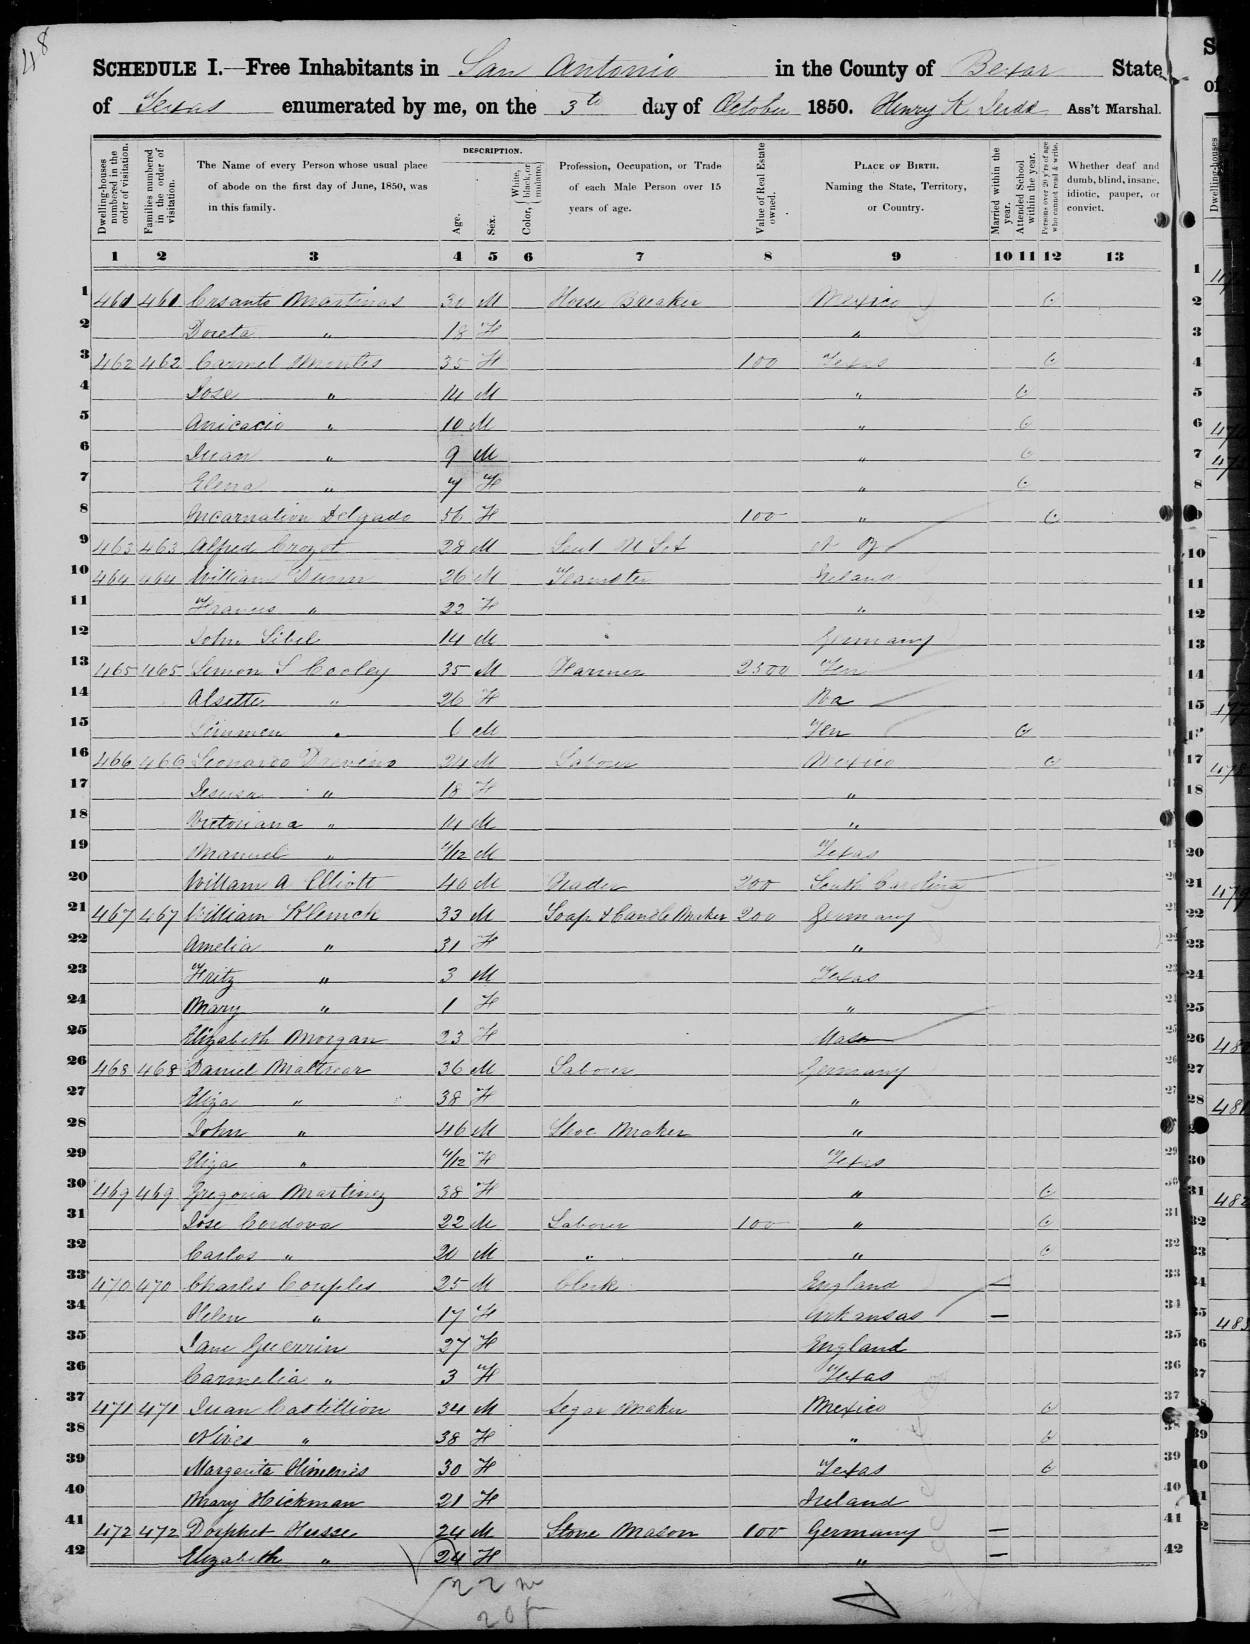 48
SCHEDULE I.—Free Inhabitants in San Antonio in the County of Bexar State
of Texas enumerated by me, on the 3th day of October 1850. Henry K Ass't Marshal.
Dwelling-houses numbered in the order of visitation.
Families numbered in the order of visitation.
The Name of every Person whose usual place of abode on the first day of June, 1850, was in this family.
DESCRIPTION.
Age.
Sex.
Color, White, black, or mulatto.
Profession, Occupation, or Trade of each Male Person over 15 years of age.
Value of Real Estate owned.
PLACE OF BIRTH. Naming the State, Territory, or Country.
Married within the year.
Attended School within the year.
Persons over 20 y'rs of age who cannot read & write.
Whether deaf and dumb, blind, insane, idiotic, pauper, or convict.
1 2 3 4 5 6 7 8 9 10 11 12 13
1 461 461 Crsanto Martinas 30 M Horse Breaker Mexico
2 Doreta " 18 F "
3 462 462 Carmel Montes 35 F 100 Texas
4 Jose " 14 M "
5 Anicacio " 10 M "
6 Juan " 9 M "
7 Elena " 7 F "
8 Incarnation Delgado 56 F 100 "
9 463 463 Alfred Crozet 28 M N Y
10 464 464 William Dunn 26 M Teamster Ireland
11 Frances " 22 F "
12 John Sibel 14 M " Germany
13 465 465 Simon S Cooley 35 M Farmer 2500 Ten
14 Alsette " 26 F
15 " 6 M Ten
16 466 466 Leonardo 24 M Laborer Mexico
17 Jesusa " 18 F "
18 Victoriana " 14 M "
19 Manuel " /12 M Texas
20 William A Elliott 40 M Trader 200 South Carolina
21 467 467 William Klemck 33 M Soap & Candle Maker 200 Germany
22 Amelia " 31 F "
23 Fritz " 3 M Texas
24 Mary " 1 F "
25 Elizabeth Morgan 23 F
26 468 468 Daniel 36 M Laborer Germany
27 Eliza " 38 F "
28 John " 46 M Shoe Maker "
29 Eliza " /12 F Texas
30 469 469 Gregoria Martinez 38 F "
31 Jose Cordova 22 M Laborer 100 "
32 Carlos " 20 M " "
33 470 470 Charles Couples 25 M Clerk England —
34 Helen " 17 F Arkansas —
35 Jane Guerrin 27 F England
36 Carmelia " 3 F Texas
37 471 471 Juan Castillion 34 M Segar Maker Mexico
38 Nives " 38 F "
39 Margarita Himenis 30 F Texas
40 Mary Hickman 21 F Ireland
41 472 472 Hesse 24 M Stone Mason 100 Germany —
42 Elizabeth " 24 F " —
22 m
20 f